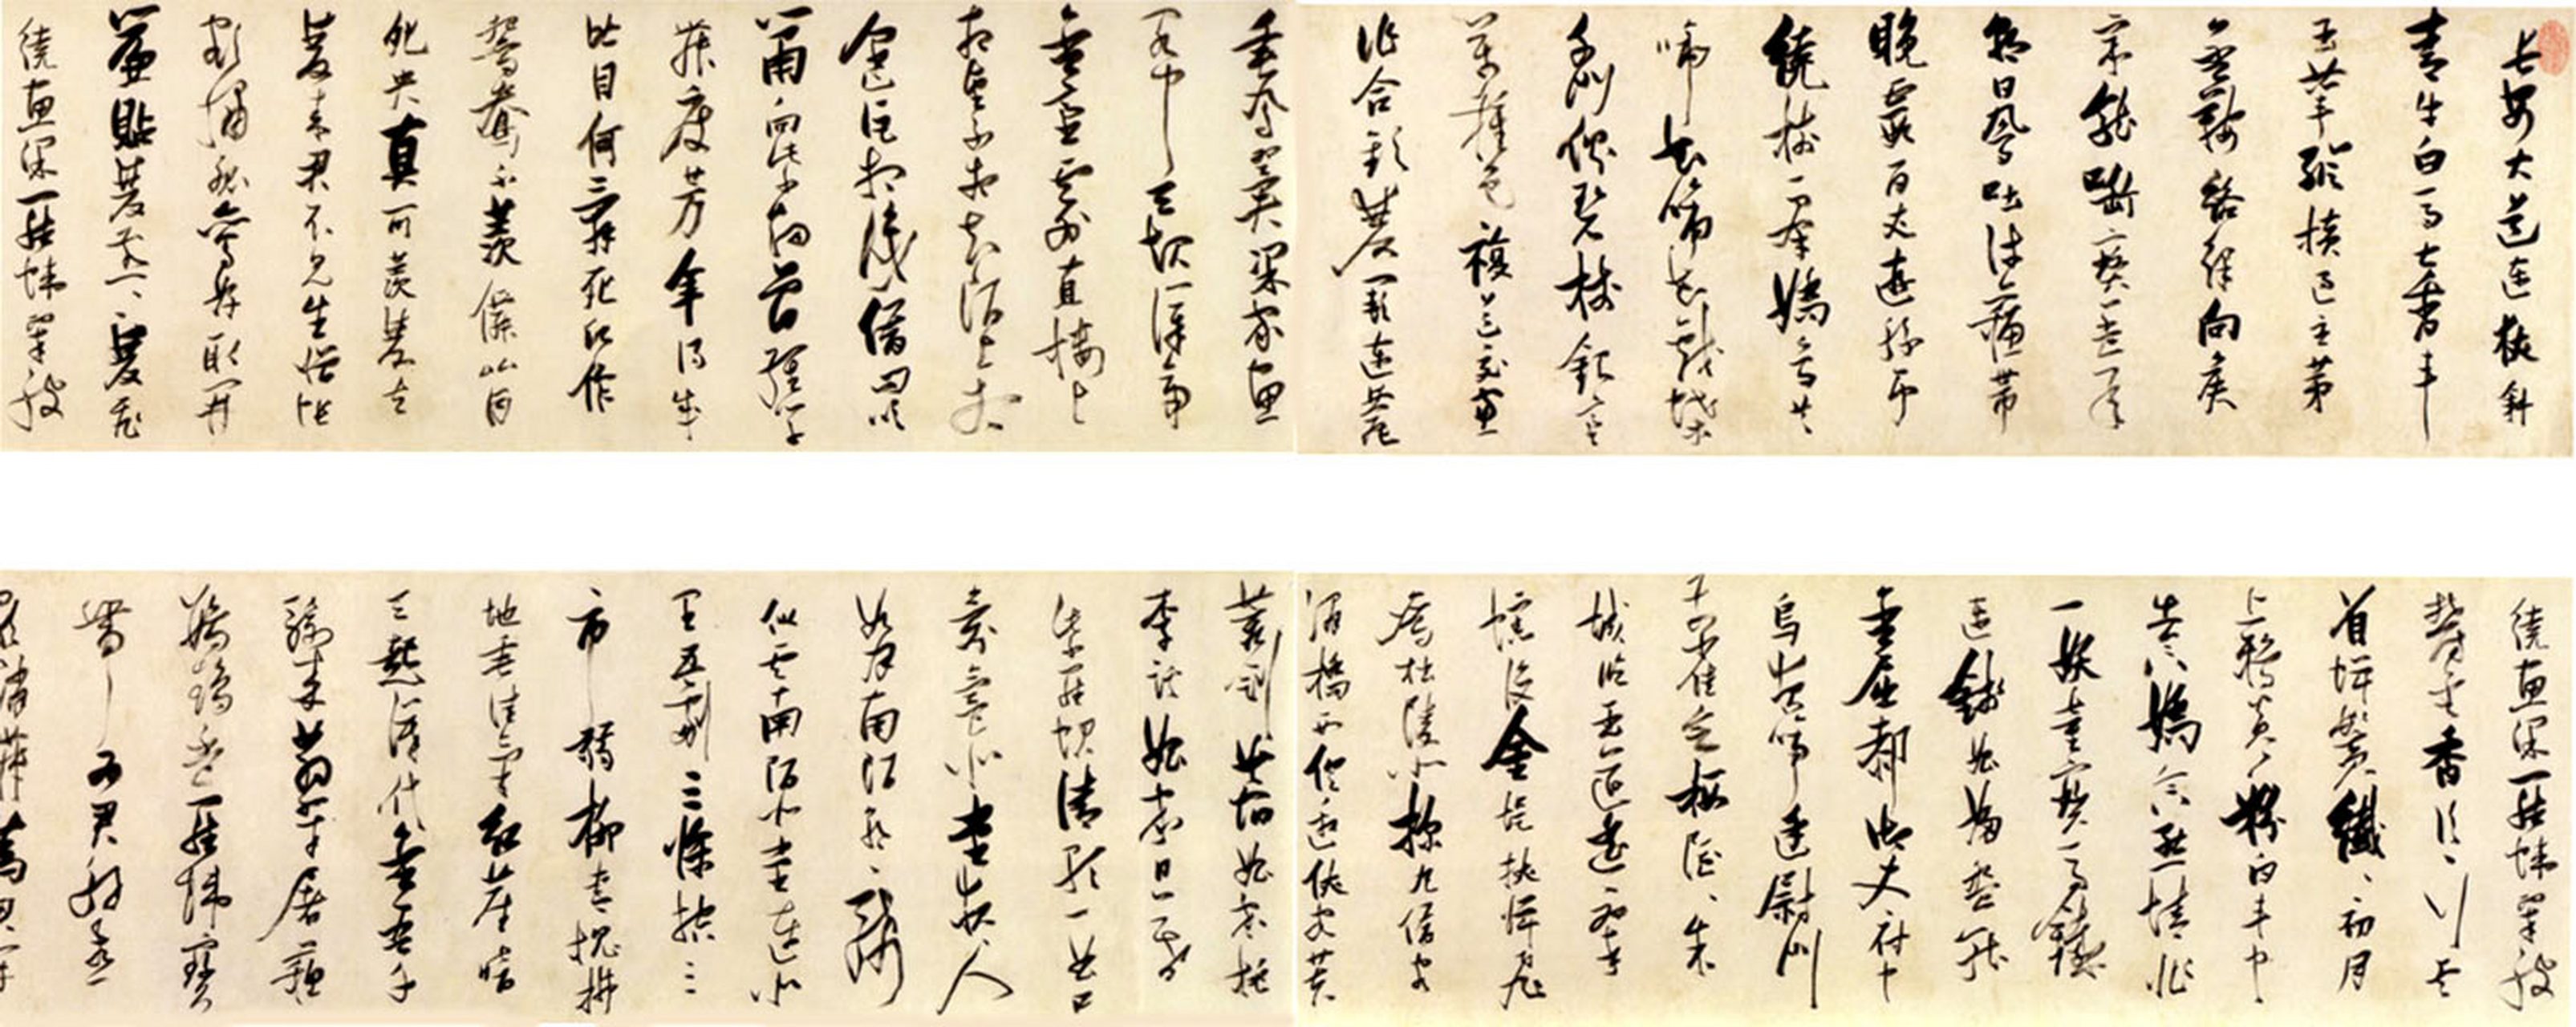 長安大道連狹斜
青牛白馬七香車
玉輦縱橫過主第
金鞭絡繹向侯
家龍銜寶蓋承
朝日鳳吐流蘇帶
晚霞百丈遊絲爭
繞樹一群嬌鳥共
啼花啼花戲蝶
千門側碧樹銀臺
萬種色複道交窗
作合歡雙闕連甍
垂鳳翼梁家畫
閣中天起漢帝
金莖雲外直樓前
相望不相知陌上相
逢詎相識借問吹
簫向紫煙曾經學
舞度芳年得成
比目何辭死願作
鴛鴦不羨仙比目
鴛鴦真可羨雙去
雙來君不見生憎帳
額繡孤鸞好取開
簾帖雙燕雙燕雙飛
繞畫梁羅幃翠被
繞畫梁羅幃翠被
鬱金香片片行雲
著蟬鬢纖纖初月
上鴉黃鴉黃粉白車中
出含嬌含態情非
一妖童寶馬鐵
連錢娼婦盤龍
金屈膝御史府中
烏夜啼廷尉門
前雀欲棲隱隱朱
城臨玉道遙遙翠
幰沒金堤挾彈飛
鷹杜陵北探丸借客
渭橋西俱邀俠客芙
蓉劍共宿娼家桃
李蹊娼家日暮紫
羅裙清歌一囀口
氛氳北堂夜夜人
如月南陌朝朝騎
似雲南陌北堂連北
里五劇三條控三
市弱柳青槐拂
地垂佳氣紅塵暗
天起漢代金吾千
騎來翡翠屠蘇
鸚鵡杯羅襦寶
帶為君解燕